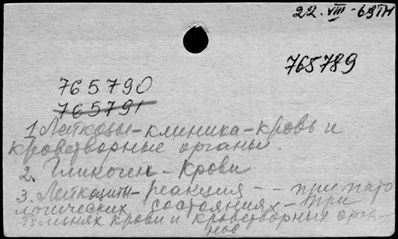 22.VIII-69
765789
765790
765791
1. Лейкозы - клиника - кровь и
кроветворные органы.
2. Гликоген - крови
3. Лейкоциты - реакция - - при пато
логических состояниях - при
крови и кроветворных орга-
нов